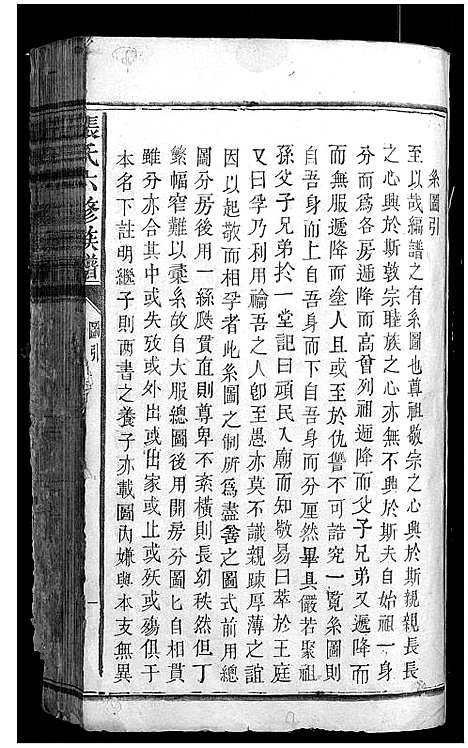 系圖引
至以哉編譜之有系圖也尊祖敬宗之心興於斯親親長長
之心興於斯敦宗睦族之心亦無不興於斯夫自始祖一身
分而爲各房遞降而高曾列祖遞降而父子兄弟又遞降而
而無服遞降而塗人且或至於仇讐不可詰究一覧系圖則
自吾身而上自吾身而下自吾身而分厘然畢具儼若聚祖
孫父子兄弟扵一堂記曰頑民入廟而知敬易曰萃於王庭
又曰孚乃利用禴吾之人卽至愚亦莫不識親踈厚薄之誼
因以起敬而相孚者此系圖之制所爲盡善之圖式前用總
圖分房後用一絲䟦貫直則尊卑不紊横則長㓜秩然但丁
繁幅窄難以槖系故自大服總圖後用開房分圖匕自相貫
雖分亦合其中或失攷或外出或出家或止或殀或殤俱于
本名下註明繼子則两書之養子亦載圖内嫌與本支無異
張氏六修族譜
圖引
一